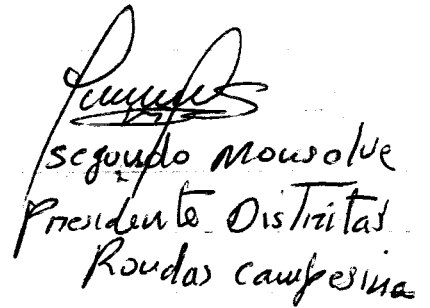 segundo Monsolve
Presidente Distrital
Rondas campesina